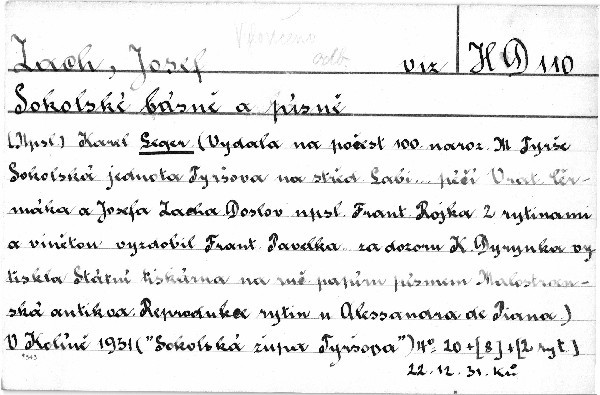 Zach, Josef viz H D 110
Sokolské básně a písně
(Npsl) Karel Leger (Vydala na počest 100. naroz. M Tyrše
Sokolská jednota Tyršova na střed Labi... péčí Vrat. Čer-
máka a Josefa Zacha Doslov npsl. Frant Rojka 2 rytinami
a vinětou vyzdobil Frant Pavelka za dozoru K. Dyrynka vy
tiskla Státní tiskárna na ruč papíru písmem Malostran-
ská antikva. Reprodukce rytin u Alessandra de Piana.)
V Kolíně 1931 ("Sokolská župa Tyršova") 4° 20+[8]+[2 ryt.]
22.12.31. Ků